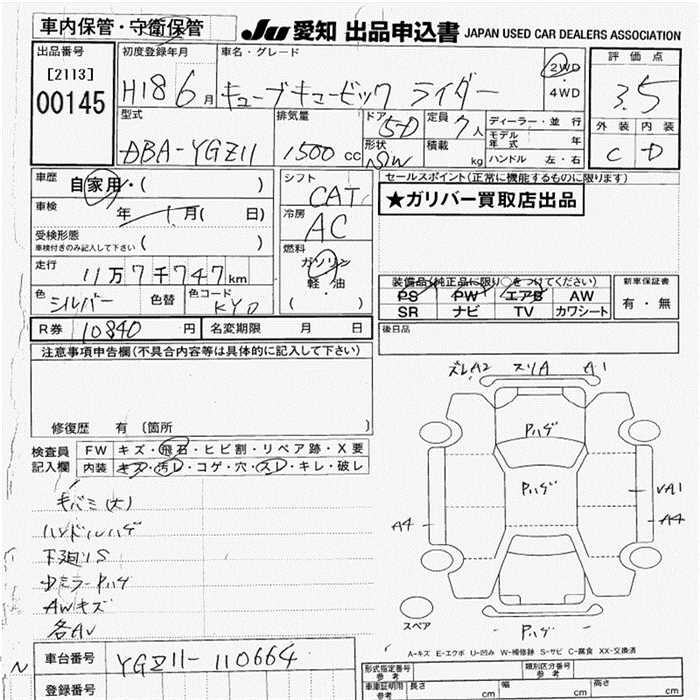 車内保管・守衛保管
Ju 愛知 出品申込書 JAPAN USED CAR DEALERS ASSOCIATION
出品番号
[2113]
00145
初度登録年月
H18 6 月
車名・グレード
キューブキュービック ライダー
2WD
・
4WD
評価点
3.5
外装 内装
C D
型式
DBA-YGZ11
排気量
1500 cc
ドア
5D
形状
定員
7人
積載
kg
ディーラー・並行
モデル年式 年
ハンドル 左・右
車歴 自家用・( )
車検 年 月( 日)
受検形態
車検付きのみ記入して下さい ( )
走行 11万7千747km
色 シルバー 色替 色コード KY0
R券 10840 円 名変期限 月 日
シフト
CAT
冷房
AC
燃料
ガソリン
軽・油
( ・ )
セールスポイント(正常に機能するものに限ります)
★ガリバー買取店出品
装備品(純正品に限り○をつけてください)
PS PW エアB AW
SR ナビ TV カワシート
新車保証書
有・無
後日品
注意事項申告欄(不具合内容等は具体的に記入して下さい)
修復歴 有 〔箇所 〕
検査員記入欄
FW キズ・飛石・ヒビ割・リペア跡・X要
内装 キズ・汚レ・コゲ・穴・スレ・キレ・破レ
毛バミ(大)
ハンドルハゲ
下廻りS
AWキズ
各AU
ズレA2 スリA A1
Pハゲ
Pハゲ
A4
A4
Pハゲ
スペア
A-キズ E-エクボ U-凹み W-補修跡 S-サビ C-腐食 XX-交換済
車台番号 YGZ11-110664
登録番号
N
形式指定番号
参考
類別区分番号
参考
車庫証明用
参考
長さ cm
幅 cm
高さ cm